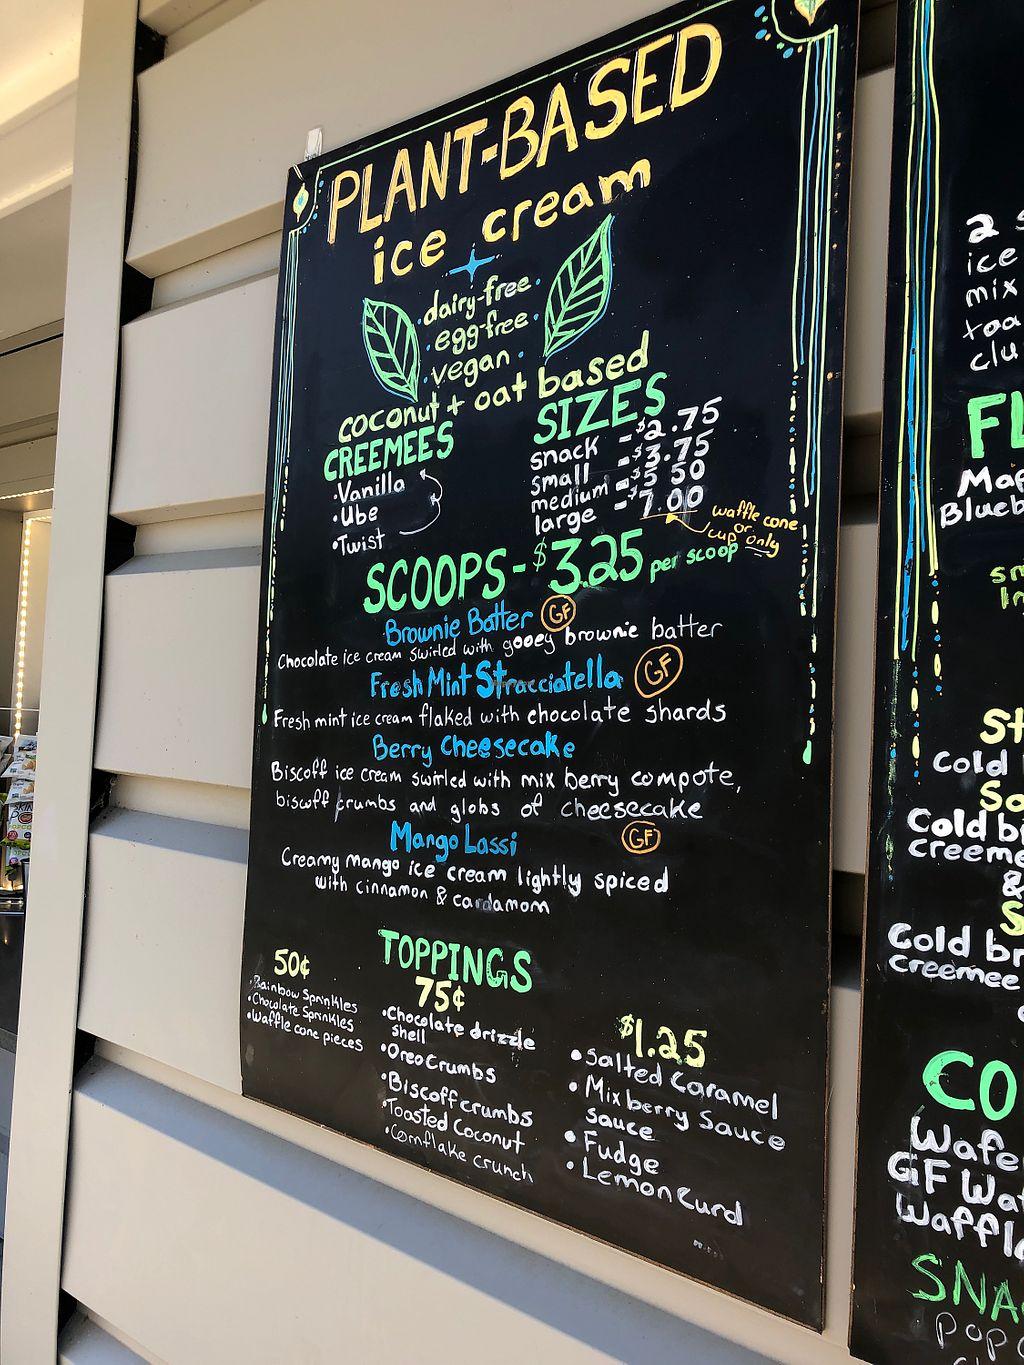 PLANT-BASED
ice cream
• dairy-free •
• egg-free •
• vegan •
coconut + oat based
CREEMEES
• Vanilla
• Ube
• Twist
SIZES
snack - $2.75
small - $3.75
medium - $5.50
large - $7.00
waffle cone
or
cup only
SCOOPS - $3.25 per scoop
Brownie Batter GF
Chocolate ice cream swirled with gooey brownie batter
Fresh Mint Stracciatella GF
Fresh mint ice cream flaked with chocolate shards
Berry Cheesecake
Biscoff ice cream swirled with mix berry compote,
biscoff crumbs and globs of cheesecake
Mango Lassi GF
Creamy mango ice cream lightly spiced
with cinnamon & cardamom
TOPPINGS
50¢
• Rainbow Sprinkles
• Chocolate Sprinkles
• Waffle cone pieces
75¢
• Chocolate drizzle
shell
• Oreo Crumbs
• Biscoff crumbs
• Toasted Coconut
• Cornflake crunch
$1.25
• Salted Caramel
• Mix berry Sauce
Sauce
• Fudge
• Lemon Curd
2
ice
mix
Cold
Cold
creeme
&
Cold
creemee
GF